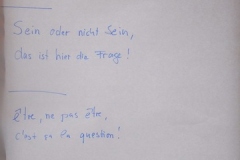 Sein oder nicht Sein,
das ist hier die Frage!
Être, ne pas être,
c'est ça la question!